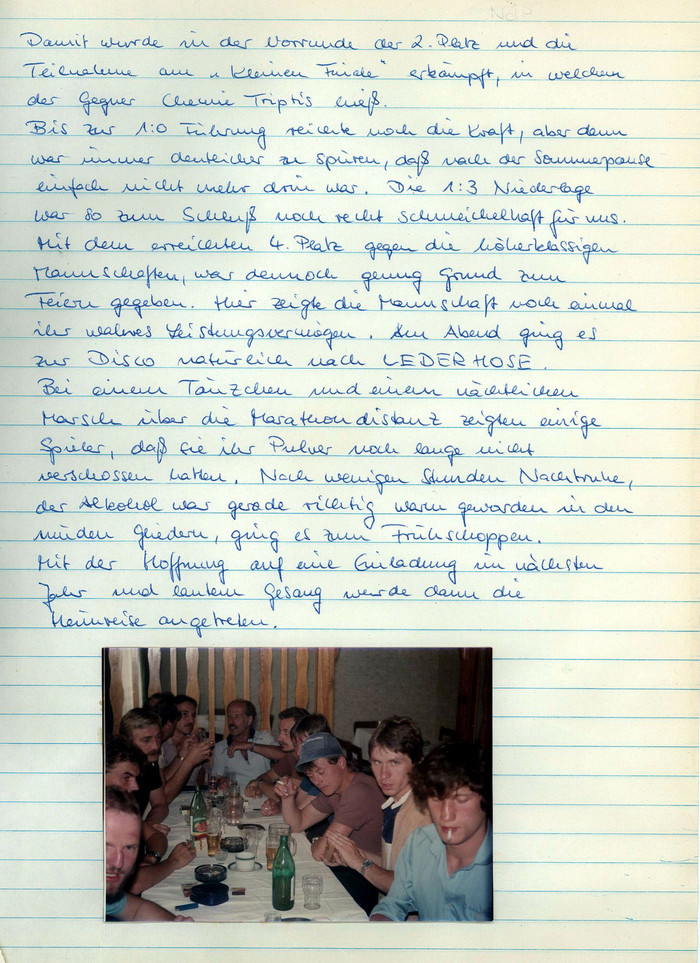 Damit wurde in der Vorrunde der 2. Platz und die
Teilnahme am „Kleinen Finale" erkämpft, in welchen
der Gegner Chemie Triptis hieß.
Bis zur 1:0 Führung reichte noch die Kraft, aber dann
war immer deutlicher zu spüren, daß nach der Sommerpause
einfach nicht mehr drin war. Die 1:3 Niederlage
war so zum Schluß noch recht schmeichelhaft für uns.
Mit dem erreichten 4. Platz gegen die höherklassigen
Mannschaften, war dennoch genug Grund zum
Feiern gegeben. Hier zeigte die Mannschaft noch einmal
ihr wahres Leistungsvermögen. Am Abend ging es
zur Disco natürlich nach LEDERHOSE.
Bei einem Tänzchen und einem nächtlichen
Marsch über die Marathondistanz zeigten einige
Spieler, daß sie ihr Pulver noch lange nicht
verschossen hatten. Nach wenigen Stunden Nachtruhe,
der Alkohol war gerade richtig warm geworden in den
müden Gliedern, ging es zum Frühschoppen.
Mit der Hoffnung auf eine Einladung im nächsten
Jahr und lautem Gesang wurde dann die
Heimreise angetreten.